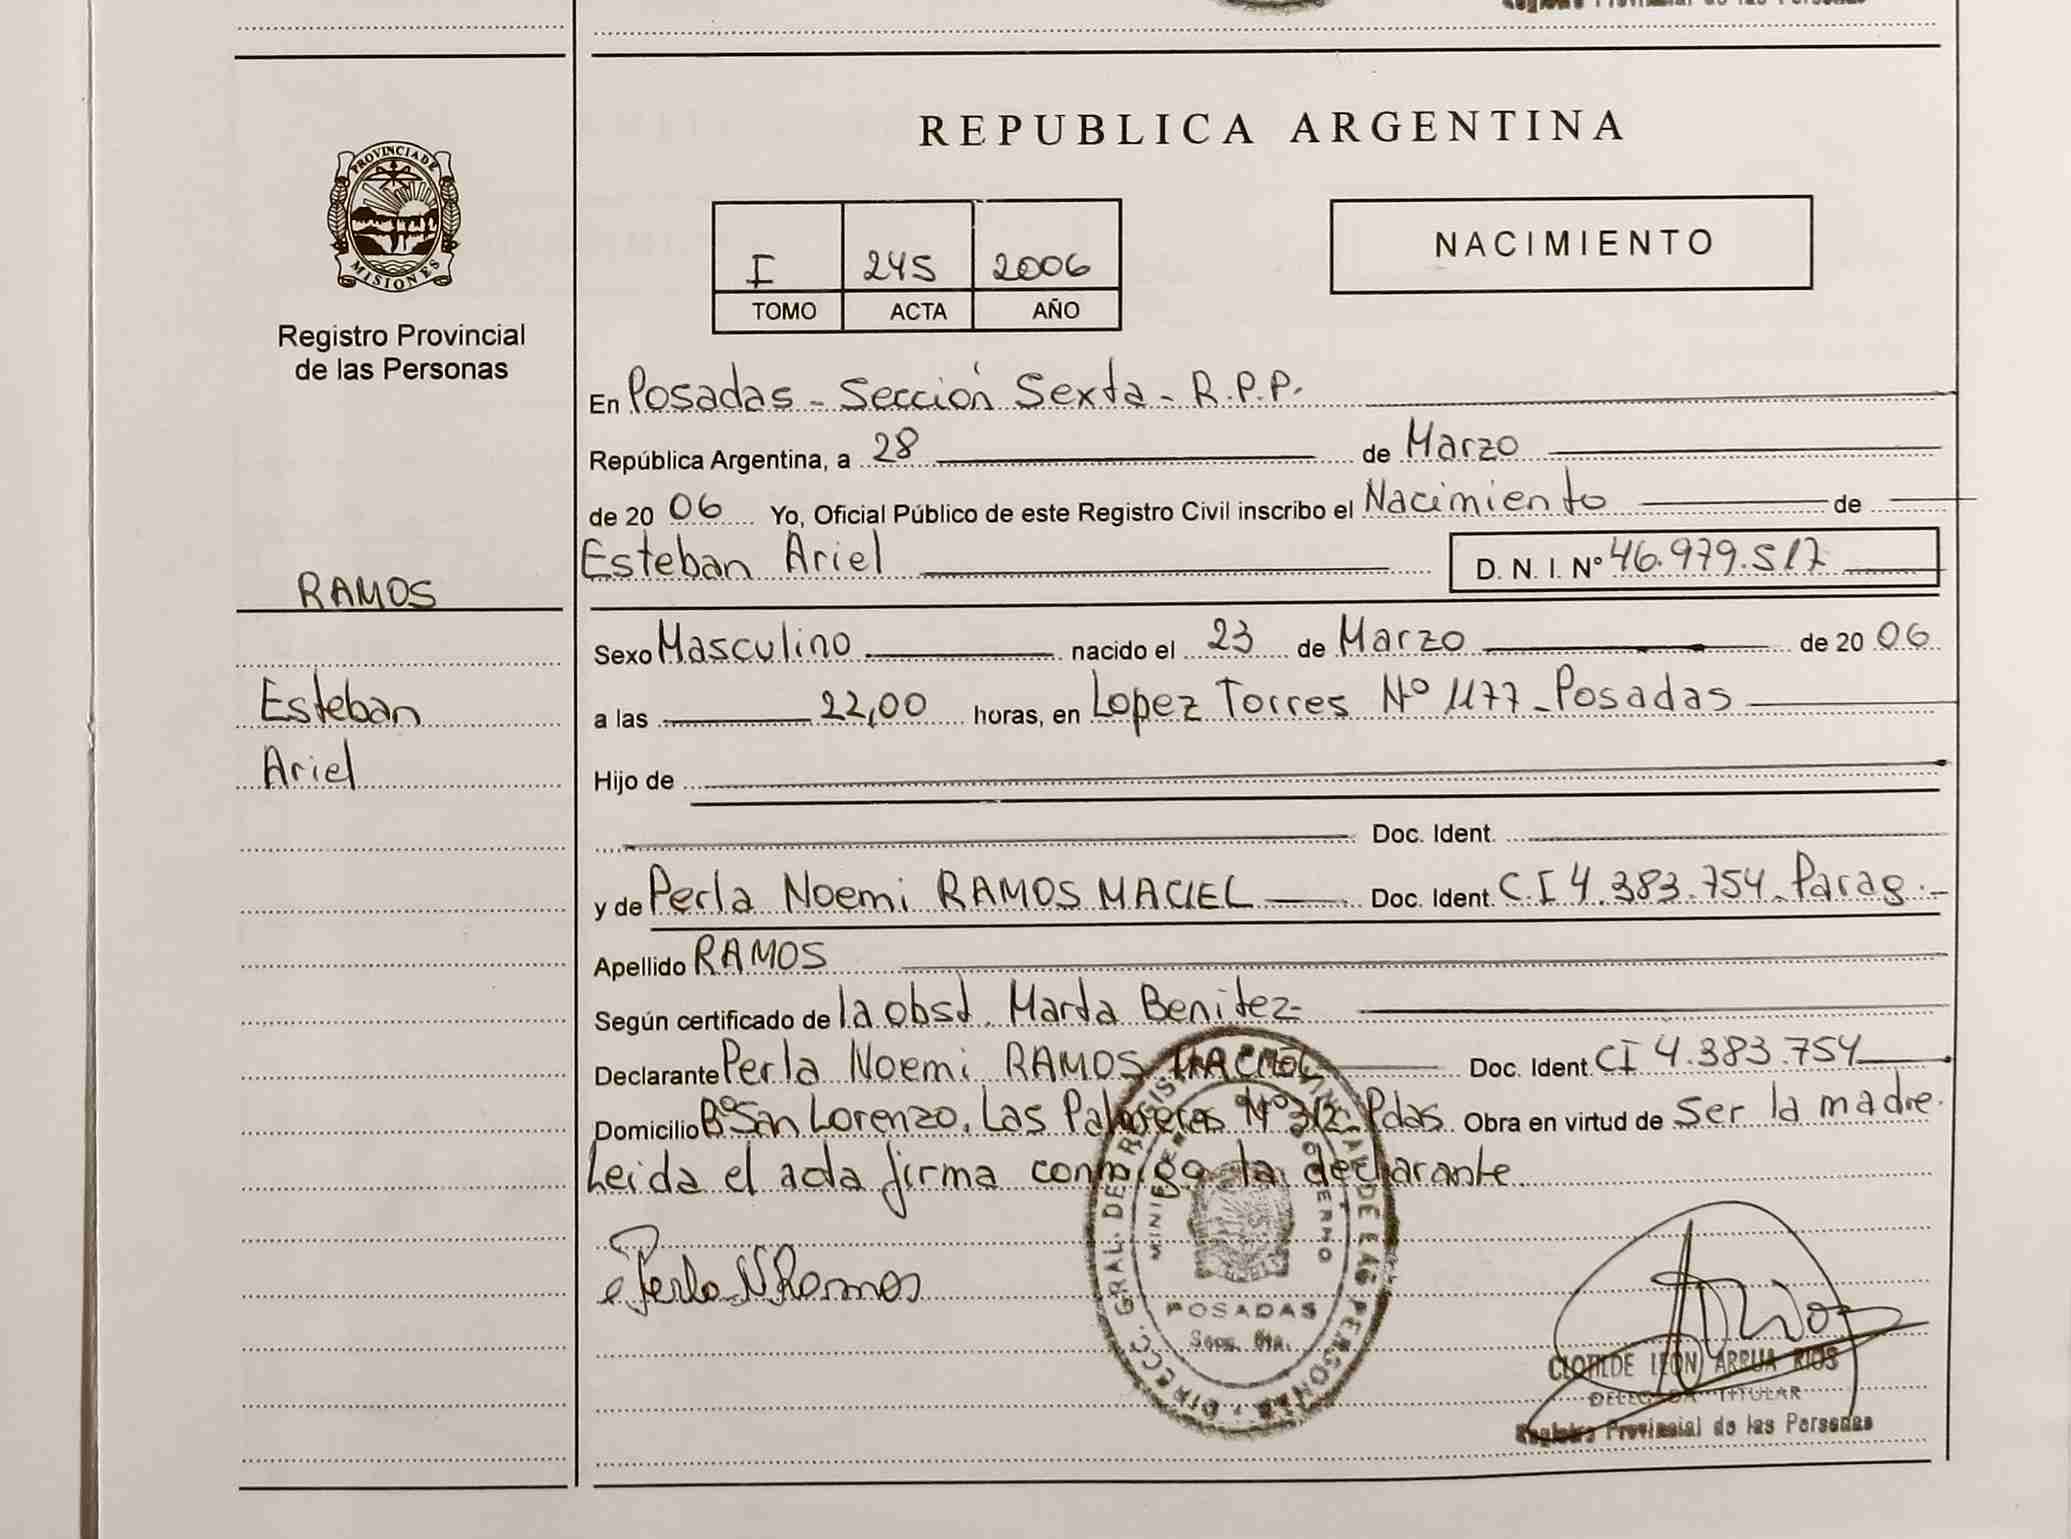 Registro Provincial de las Personas
REPUBLICA ARGENTINA
PROVINCIA DE
MISIONES
Registro Provincial
de las Personas
I 245 2006
TOMO ACTA AÑO
NACIMIENTO
En Posadas - Sección Sexta - R.P.P.
República Argentina, a 28 de Marzo
de 20 06 Yo, Oficial Público de este Registro Civil inscribo el Nacimiento de
Esteban Ariel D. N. I. Nº 46.979.517
RAMOS
Esteban
Ariel
Sexo Masculino nacido el 23 de Marzo de 20 06
a las 22,00 horas, en Lopez Torres Nº 1177 - Posadas
Hijo de
Doc. Ident.
y de Perla Noemi RAMOS MACIEL Doc. Ident. C I 4.383.754. Parag.-
Apellido RAMOS
Según certificado de la obst. Marta Benitez-
Declarante Perla Noemi RAMOS MACIEL Doc. Ident. CI 4.383.754
Domicilio Bº San Lorenzo. Las Palmeras Nº 312- Pdas. Obra en virtud de Ser la madre.
Leida el acta firma conmigo la declarante.
Perla N Ramos
DIRECC. GRAL. DEL REGISTRO PROVINCIAL DE LAS PERSONAS
POSADAS
CLOTILDE LEON ARRUA RIOS
DELEGADA TITULAR
Registro Provincial de las Personas